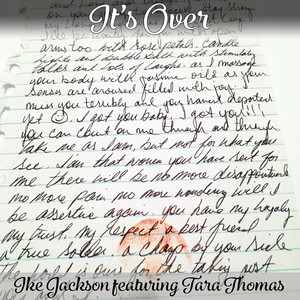 It's Over
arms too with rose petals. Candle
lights and bubble bath with
and lots of laughs. as I massage
your body with jasmine oils as your
senses are aroused filled with joy.
miss you terribly and you haven't departed
yet I got you baby, I got you!!!
you can count on me through and through
Take me as I am, but not for what you
see. I am that women you have sent for
me there will be no more disappointment
no more pain no more wondering will I
be assertive again. you have my loyalty
my trust, my respect a best friend
a true soldier a champ by your side
the is ours for the taking rest
Ike Jackson featuring Tara Thomas